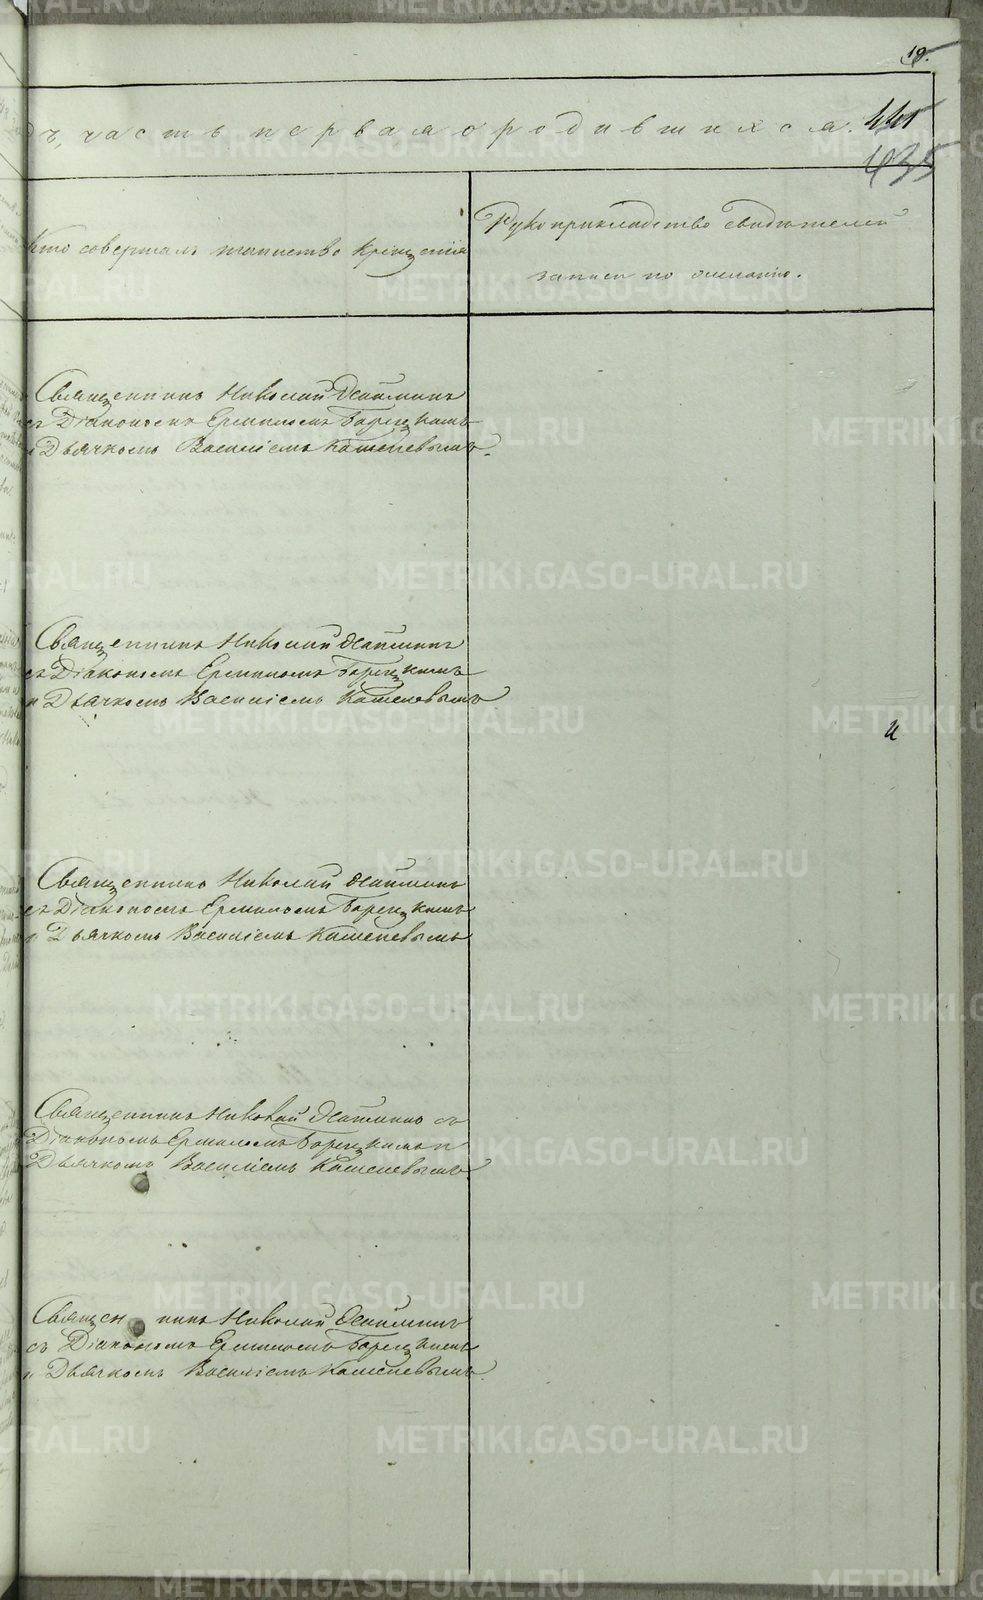 19.
дъ, часть первая о родившихся.
441
435
Кто совершалъ таинство крещенія
Рукоприкладство свидѣтелей
записи по желанію.
Священникъ Николай
съ Діакономъ Ермиломъ
и Дьячкомъ Василіемъ Кошелевымъ.
Священникъ Николай
съ Діакономъ Ермиломъ
и Дьячкомъ Василіемъ Кошелевымъ
и
Священникъ Николай
съ Діакономъ Ермиломъ
и Дьячкомъ Василіемъ Кошелевымъ
Священникъ Николай съ
Діакономъ Ермиломъ и
Дьячкомъ Василіемъ Кошелевымъ.
Священникъ Николай
съ Діакономъ Ермиломъ
и Дьячкомъ Василіемъ Кошелевымъ.
METRIKI.GASO-URAL.RU